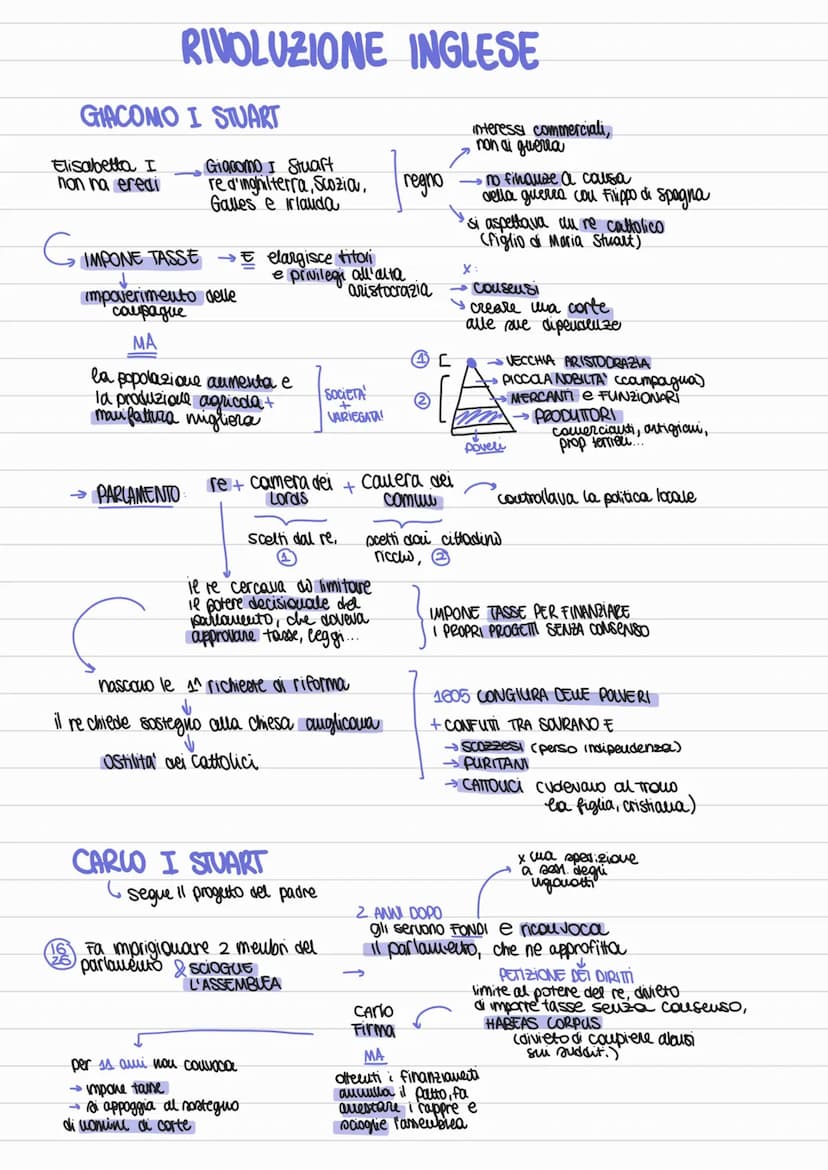 RIVOLUZIONE INGLESE
GIACOMO I STUART
Elisabetta I
non ha eredi
→ Giacomo I Stuart
re d'inghilterra, Scozia,
Galles e Irlanda
regno
interessi commerciali,
non di guerra
→ no finanze a causa
della guerra con Filippo di Spagna
si aspettava un re cattolico
(figlio di Maria Stuart)
IMPONE TASSE → E elargisce titoli
e privilegi all'alta
aristocrazia
x:
→ consensi
creare una corte
alle sue dipendenze
impoverimento delle
campagne
MA
la popolazione aumenta e
la produzione agricola +
manifattura migliora
SOCIETA'
+
VARIEGATA!
1
2
→ VECCHIA ARISTOCRAZIA
→ PICCOLA NOBILTA' (campagna)
→ MERCANTI e FUNZIONARI
→ PRODUTTORI
commercianti, artigiani,
prop terrieri...
poveri
→ PARLAMENTO: re + camera dei Lords + camera dei comuni
controllava la politica locale
scelti dal re,
1
scelti dai cittadini
ricchi, 2
il re cercava di limitare
il potere decisionale del
parlamento, che doveva
approvare tasse, leggi...
IMPONE TASSE PER FINANZIARE
I PROPRI PROGETTI SENZA CONSENSO
nascono le 1^ richieste di riforma
il re chiede sostegno alla chiesa anglicana
ostilita' dei cattolici
1605 CONGIURA DELLE POLVERI
+ CONFLITTI TRA SOVRANO E
→ SCOZZESI (perso indipendenza)
→ PURITANI
→ CATTOLICI (volevano al trono
la figlia, cristiana)
CARLO I STUART
segue il progetto del padre
x una spedizione
a sos. degli
ugonotti
1626 Fa imprigionare 2 membri del
parlamento & SCIOGLIE
L'ASSEMBLEA
→
2 ANNI DOPO
gli servono FONDI e riconvoca
il parlamento, che ne approfitta
PETIZIONE DEI DIRITTI
limite al potere del re, divieto
di imporre tasse senza consenso,
HABEAS CORPUS
(divieto di compiere abusi
sui suddit.)
CARLO
FIRMA
MA
ottenuti i finanziamenti
annulla il patto, fa
arrestare i rappre e
scioglie l'assemblea
per 11 anni non convoca
→ impone tasse
→ si appoggia al sostegno
di uomini di corte